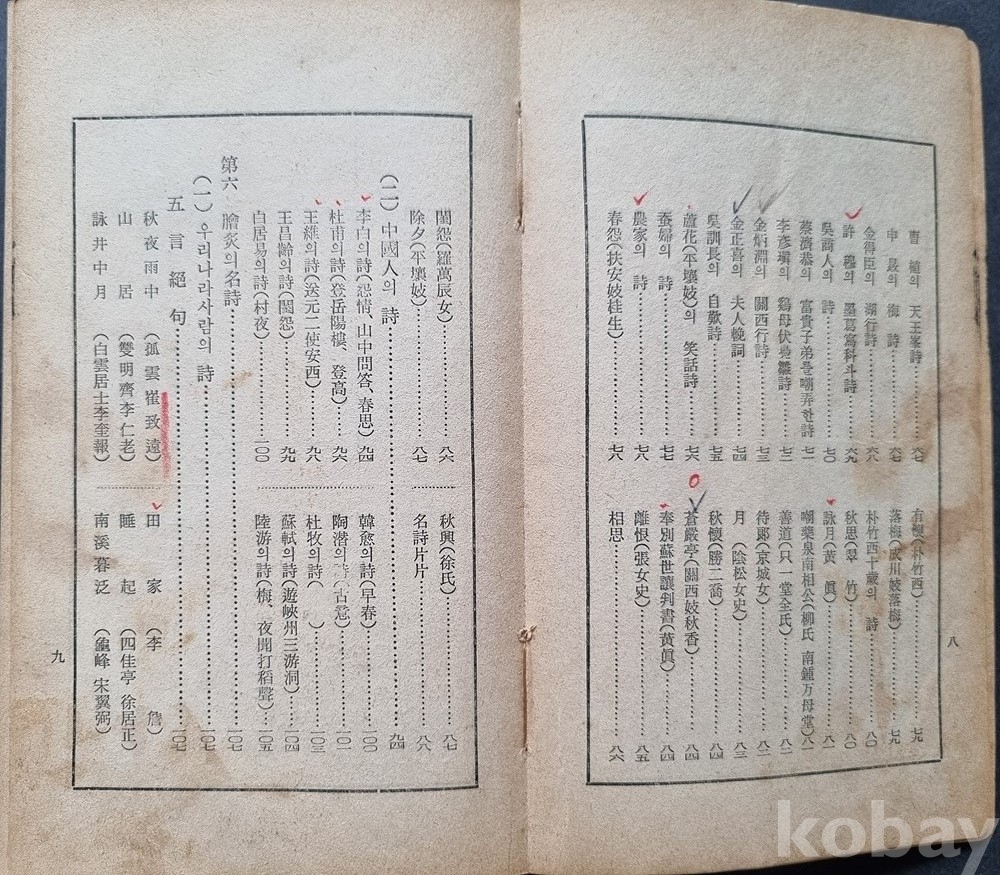 曹植의 天王峯詩……六七
申最의 海詩……六七
金得臣의 湖行詩……六八
許穆의 墨葛寫科斗詩……六九
吳商人의 詩……七〇
蔡濟恭의 富貴子弟를嘲弄한詩……七一
李彦瑱의 鷄母伏鳧雛詩
金炳淵의 關西行詩……七三
金正喜의 夫人輓詞……七四
吳訓長의 自歎詩……七五
蘆花(平壤妓)의 笑話詩……七六
蚕婦의 詩……七七
農家의 詩……七八
春怨(扶安妓桂生)……七八
有懷(朴竹西)……七九
落梅(成川妓落梅)……七九
朴竹西十歲의 詩……八〇
秋思(翠竹)……八〇
詠月(黃眞)……八一
嘲藥泉南相公(柳氏 南鍾万母堂)八一
善道(只一堂金氏)……八二
待郞(京城女)……八二
月(陰松女史)……八三
秋懷(勝二喬)……八四
蒼巖亭(關西妓秋香)……八四
奉別蘇世讓判書(黃眞)……八四
離恨(張女史)……八五
相思……八六
八
閨怨(羅萬辰女)……八六
除夕(平壤妓)……八七
秋興(徐氏)……八七
名詩片片……八八
(二) 中國人의 詩……九四
李白의詩(怨情、山中問答、春思)……九四
杜甫의詩(登岳陽樓、登高)……九六
王維의詩(送元二使安西)……九八
王昌齡의詩(閨怨)……九九
白居易의詩(村夜)……一〇〇
韓愈의詩(早春)……一〇〇
陶潛의詩(古意)……一〇一
杜牧의詩( )……一〇三
蘇軾의詩(遊峽州三游洞)……一〇四
陸游의詩(梅、夜聞打稻聲)……一〇五
第六 膾炙의名詩……一〇七
(一) 우리나라사람의 詩……一〇七
五言絕句……一〇七
秋夜雨中 (孤雲崔致遠)
山居 (雙明齊李仁老)
詠井中月 (白雲居士李奎報)
田家 (李詹)
睡起 (四佳亭 徐居正)
南溪暮泛 (龜峰 宋翼弼)
九
kobay